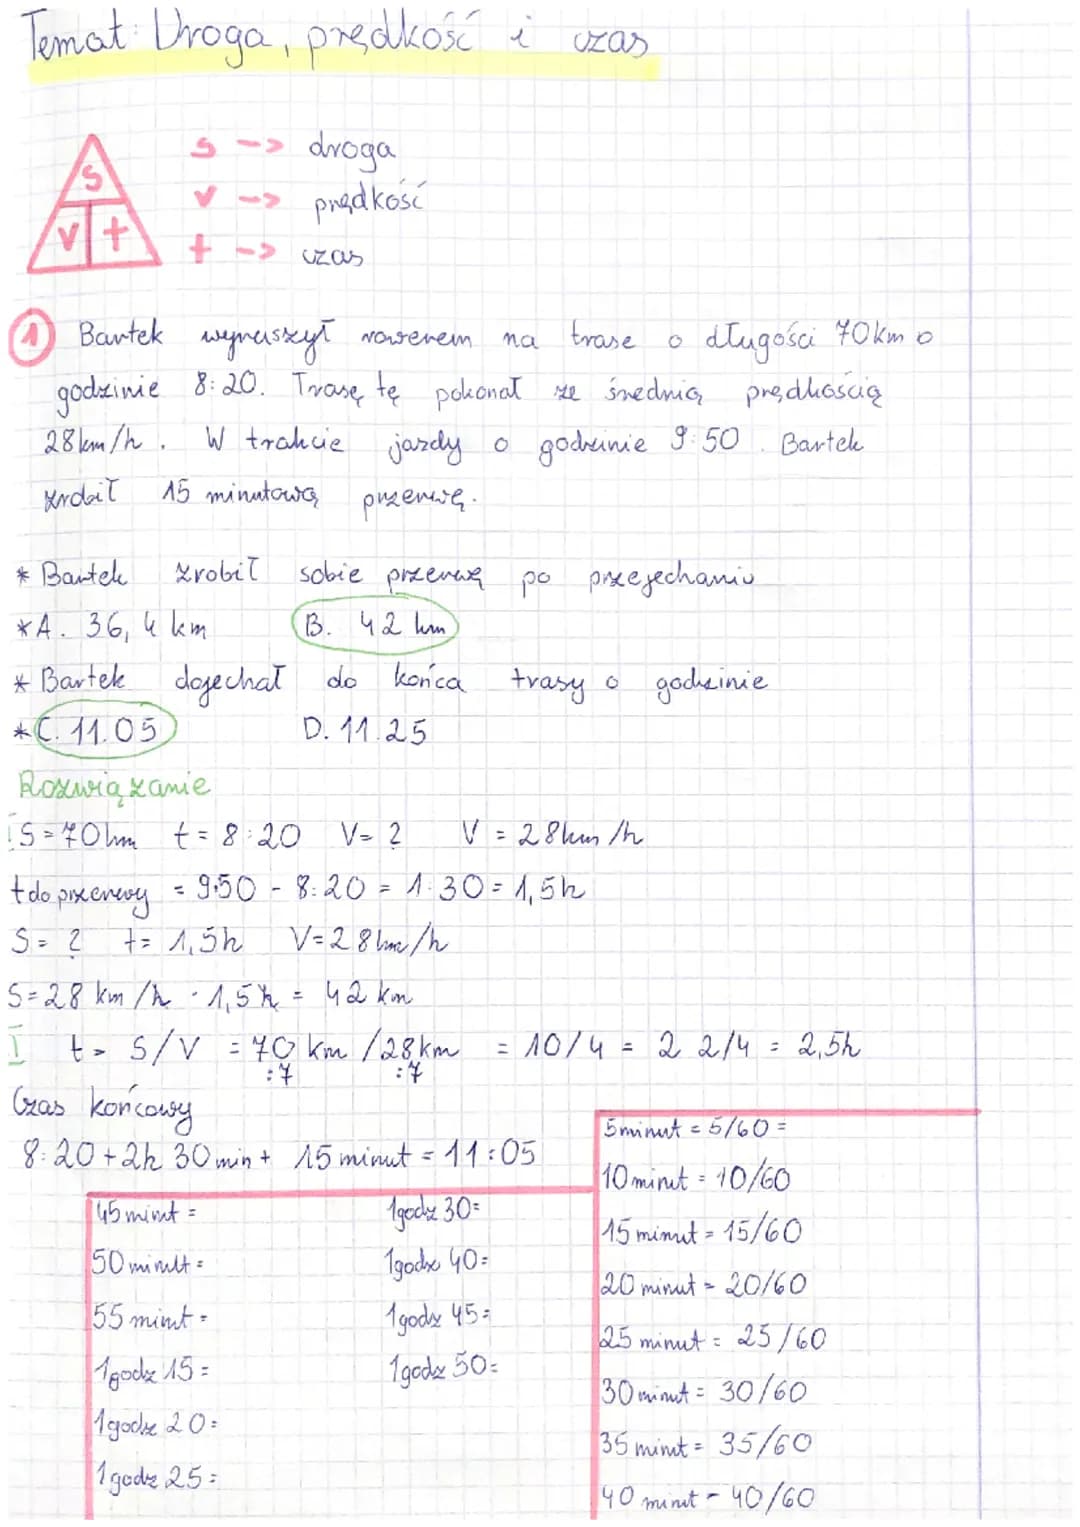 Temat: Droga, prędkość i czas
s --> droga
s
v --> prędkość
v t
t --> czas
1 Bartek wyruszył rowerem na trase o długości 70km o
godzinie 8:20. Trasę tę pokonał ze średnią prędkością
28km/h. W trakcie jazdy o godzinie 9:50. Bartek
zrobił 15 minutową przerwę.
* Bartek zrobił sobie przerwę po przejechaniu
*A. 36,4 km B. 42 km
* Bartek dojechał do końca trasy o godzinie
*C. 11.05 D. 11.25
Rozwiązanie
S=70km t=8:20 V=? V=28km/h
t do przerwy = 9:50 - 8:20 = 1:30 = 1,5h
S=? t=1,5h V=28km/h
S=28 km/h · 1,5h = 42 km
I t= S/V = 70 km /28km = 10/4 = 2 2/4 = 2,5h
:7 :7
Czas końcowy
8:20+2h 30min+ 15 minut = 11:05
5minut = 5/60 =
10minut = 10/60
15 minut = 15/60
20 minut = 20/60
25 minut = 25/60
30minut = 30/60
35 minut = 35/60
40 minut = 40/60
45 minut =
50 minut =
55 minut =
1godz 15 =
1godz 20=
1godz 25=
1godz 30=
1godz 40=
1godz 45=
1godz 50=